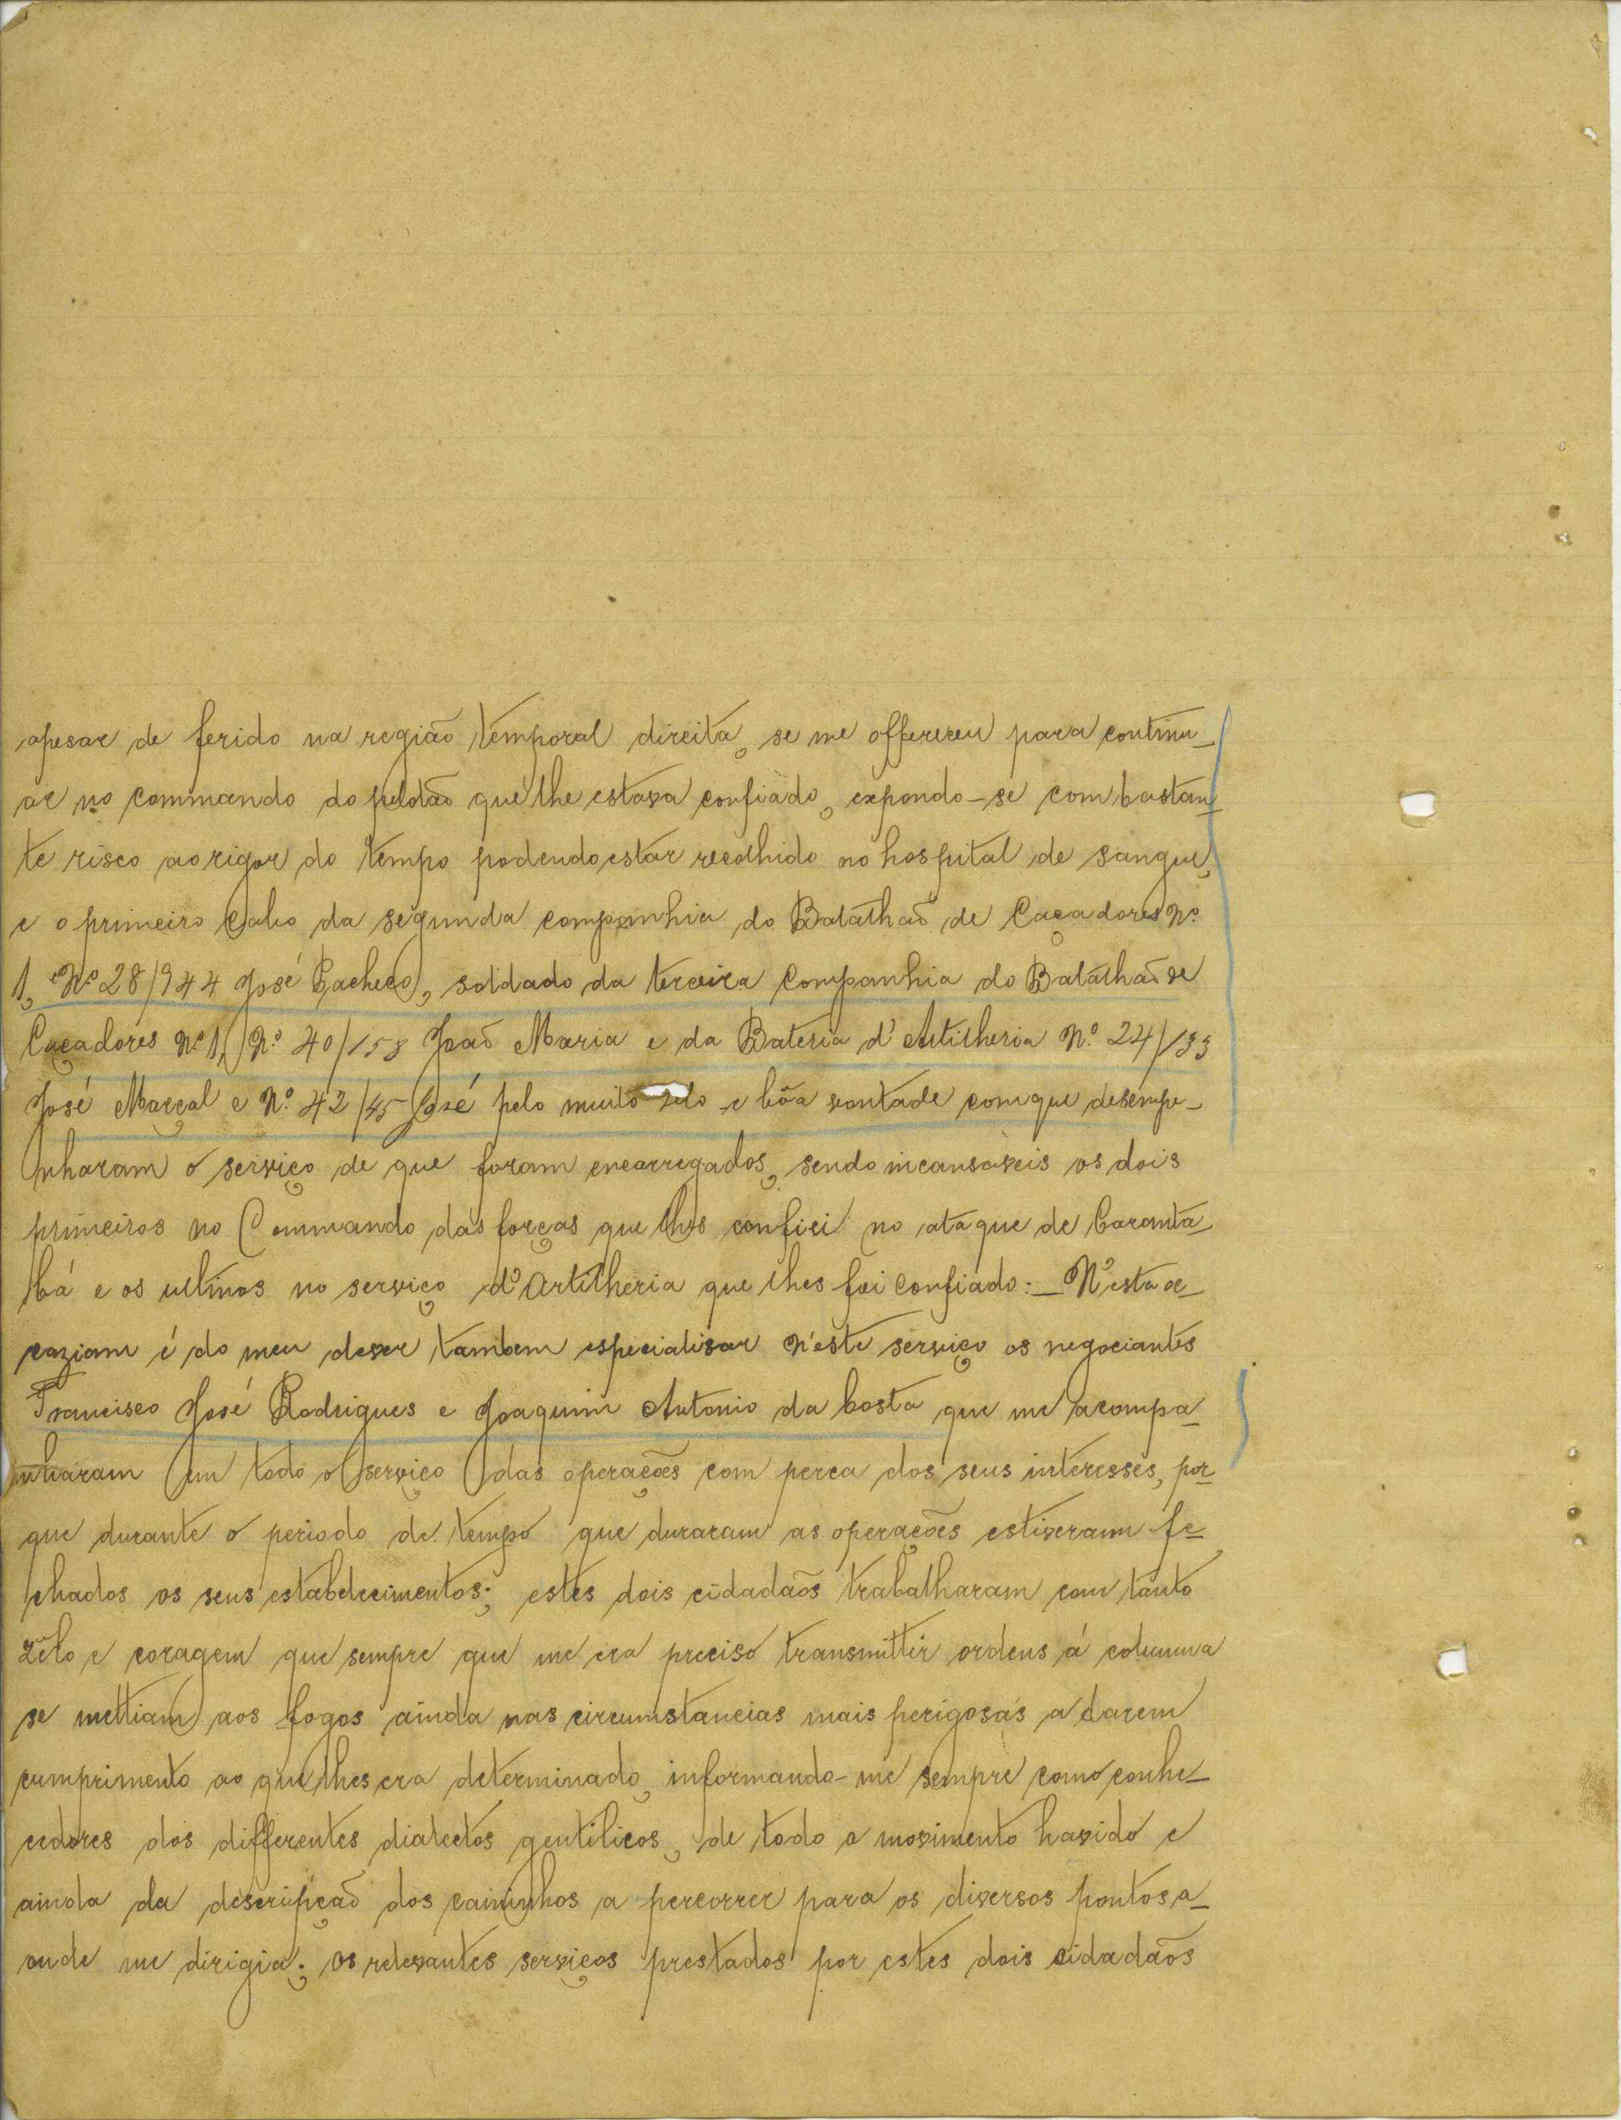 apesar de ferido na região temporal direita, se me offereceu para continu-
ar no commando do pelotão que lhe estava confiado, expondo-se com bastan-
te risco ao rigor do tempo podendo estar recolhido no hospital de sangue,
e o primeiro Cabo da segunda companhia do Batalhaõ de Caçadores Nº
1, Nº 28/944 José Pacheco, soldado da terceira Companhia do Batalhaõ de
Caçadores Nº 1, Nº 40/158 Joaõ Maria e da Bateria d'Artilheria Nº 24/133
José Marçal e Nº 42/45 José pelo muito zelo e bôa vontade com que desempe-
nharam o serviço de que foram encarregados, sendo incansaveis os dois
primeiros no Commando das forças que lhes confiei no ataque de Caranta-
bá e os ultimos no serviço d'Artilheria que lhes foi confiado:_ N'esta oc-
caziam é do meu dever tambem especialisar n'este serviço os negociantes
Francisco José Rodrigues e Joaquim Antonio da Costa que me acompa-
nharam em todo o serviço das operacões com perca dos seus interesses, por-
que durante o periodo de tempo que duraram as operacões estiveram fe-
chados os seus estabelecimentos; estes dois cidadaõs trabalharam com tanto
zêlo e coragem que sempre que me era preciso transmittir ordens á columna
se mettiam aos fogos ainda nas circumstancias mais perigosas a darem
cumprimento ao que lhes era determinado, informando-me sempre como conhe-
cedores dos differentes dialectos gentilicos, de todo o movimento havido e
ainda da descripçaõ dos caminhos a percorrer para os diversos pontos a-
onde me dirigia; os relevantes serviços prestados por estes dois cidadaõs